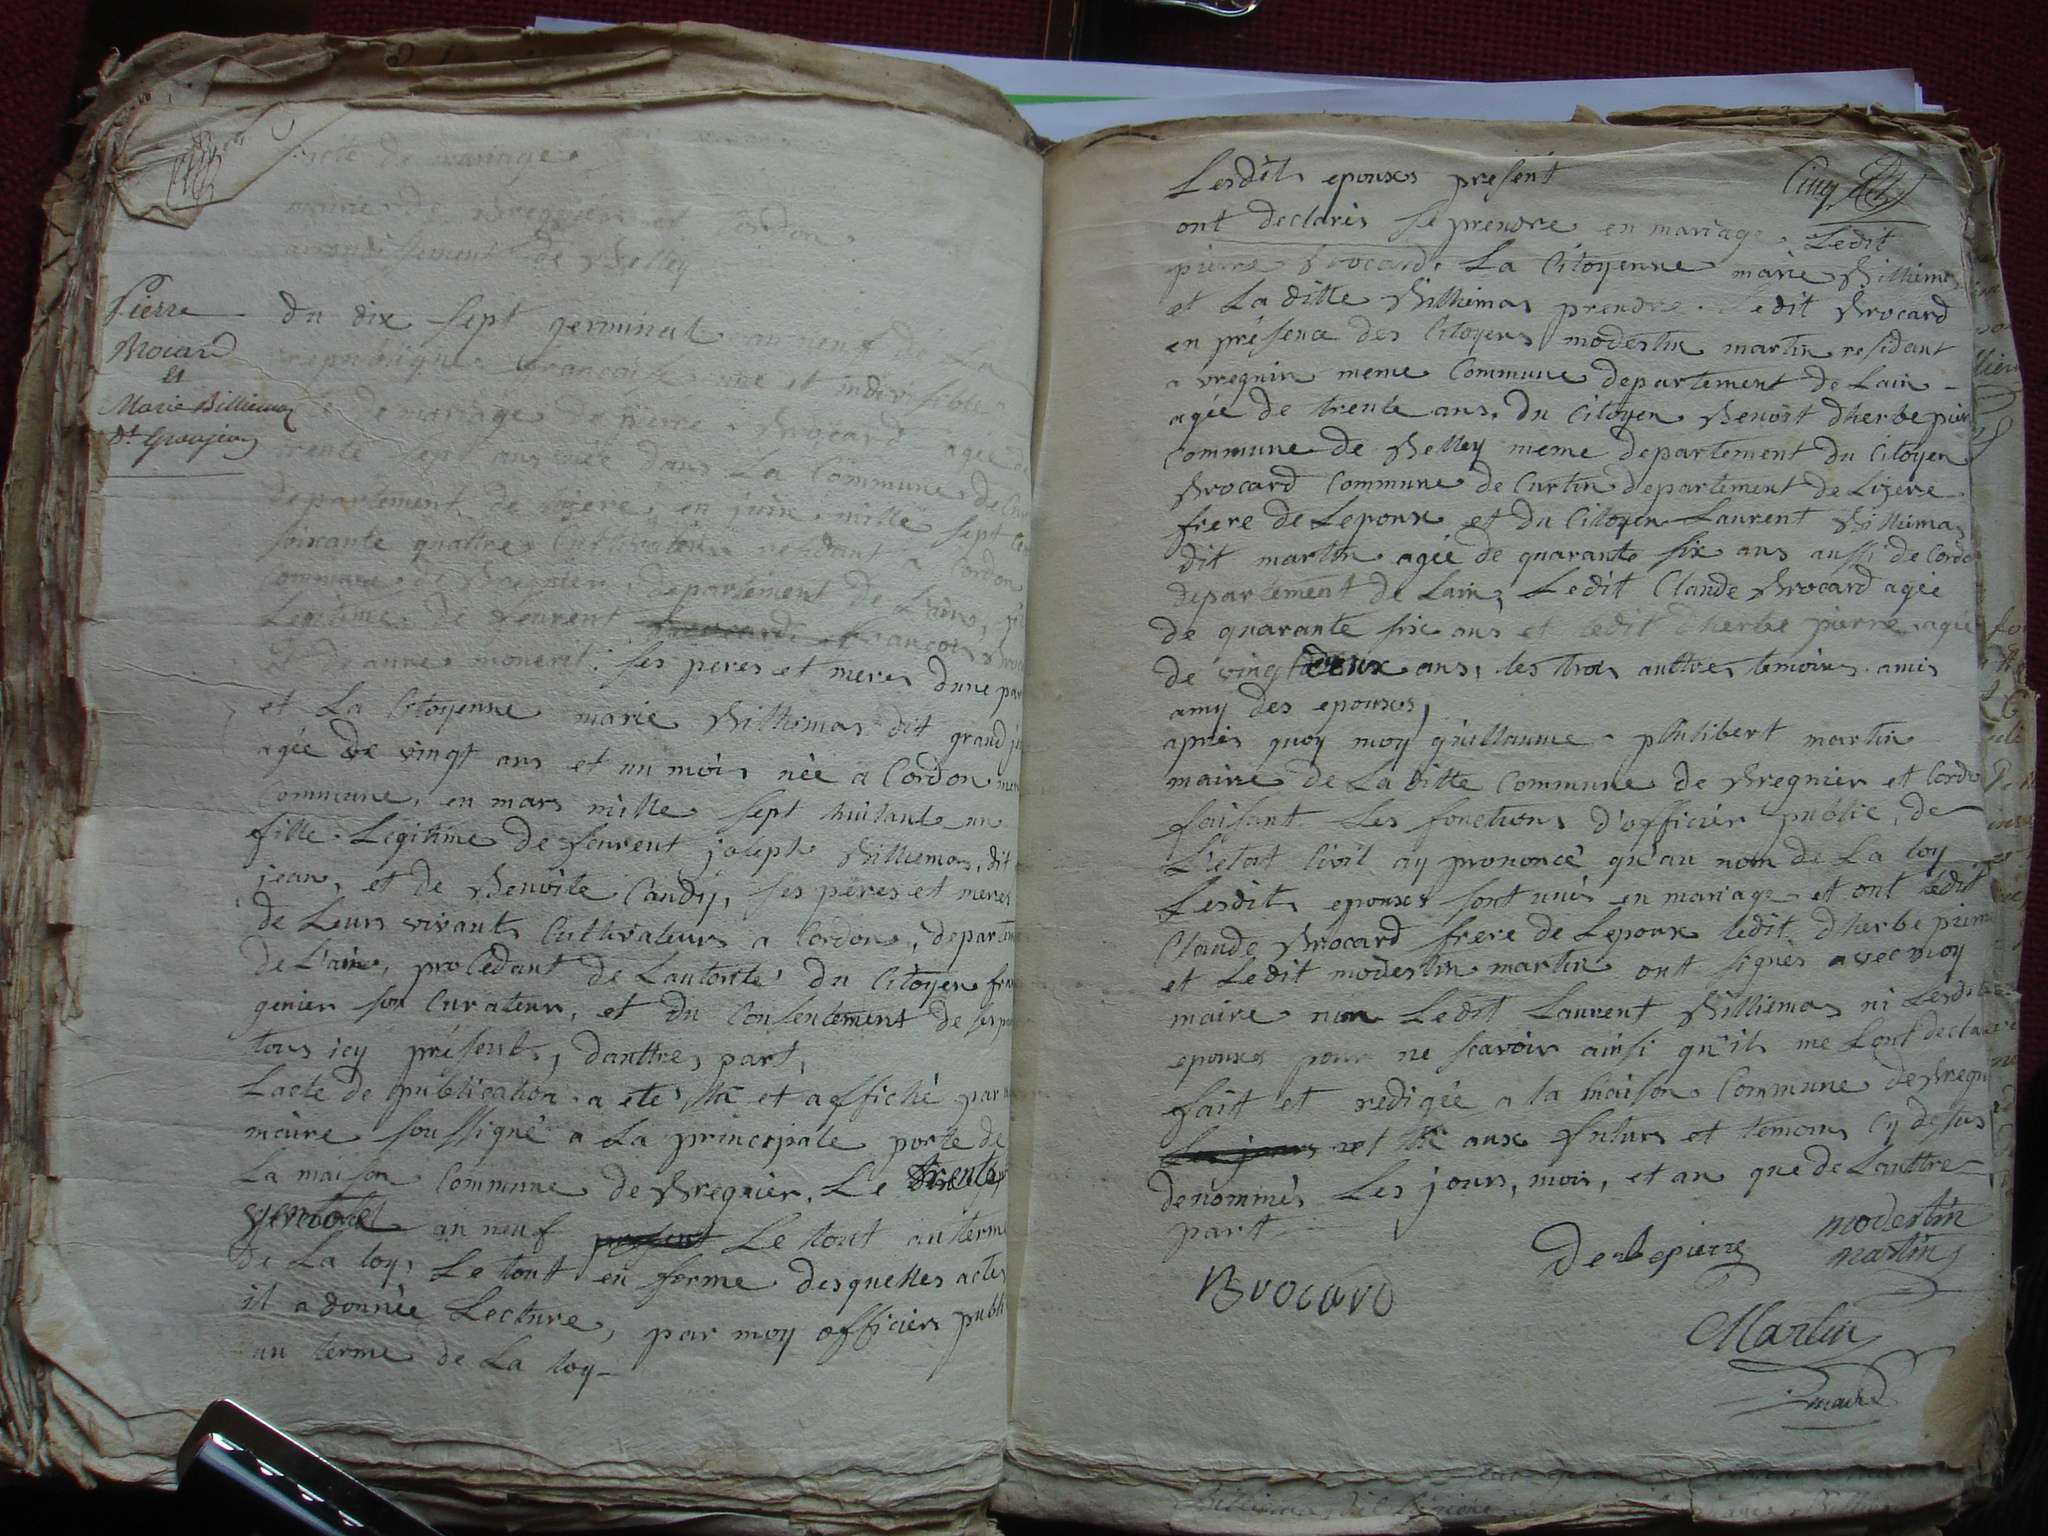 acte de mariage.
de Bregnier et Cordon
arrondissement de Belley
Pierre
Brocard
et
Marie Billiemaz
dt Grosjean
du dix sept germinal an neuf de la
republique francaise une et indivisible
acte de mariage de pierre Brocard agée de
trente sept ans née dans la Commune de
departement de lizere, en juin mille sept cen
soixante quatre Cultivateur residant a Cordon
commune de Bregnier, departement de Lain, fils
Legitime de Laurent Brocard francois Broca
et de anne moneret: ses peres et meres dune part
et La Citoyenne marie Billiemas dit grand j
agée de vingt ans et un mois née a Cordon meme
Commune, en mars mille sept huitante un
fille Legitime de Laurent joseph Billiemas, dit
jean, et de Benoite Candy, ses peres et meres
de Leurs vivants Cultivateurs a Cordon, departem
de L'ain, procedant de Lautorité du Citoyen fra
genier son Curateur, et du Consentement de ses
tous icy présents, dauttres part,
Lacte de publication a eté et affiché par
maire soussigné a La principale porte de
La maison Commune de Bregnier, Le trente
ventose an neuf present Le tout au terme
de La loy, Le tout en forme desquelles actes
il a donnée Lecture, par moy officier publi
au terme de La loy
Cinq
Lesdits epouxs présent
ont declarés se prendre en mariage, Ledit
pierre Brocard, La Citoyenne marie Billiemas
et La ditte Billiemas prendre Ledit Brocard
en présence des Citoyens modestin martin residant
a Bregnin meme Commune departement de Lain
agée de trente ans, du Citoyen Benoit dherbe pier
Commune de Belley meme departement du Citoyen
Brocard Commune de Curtin departement de Lizere
frere de Lepoux et du Citoyen Laurent Billiemas
dit martin agée de quarante six ans aussi de Cordo
departement de Lain, Ledit Claude Brocard agée
de quarante six ans et ledit dherbe pierre agée
de vingt deux ans, les trois auttres temoins amis
amy des epouxs,
après quoy moy guillaume philibert martin
maire de La ditte Commune de Bregnier et Cordo
faisant Les fonctions d'officier public, de
L'etat Civil ay prononcé qu'au nom de La loy
Lesdits epouxs sont unis en mariage et ont ledit
Claude Brocard frere de Lepoux ledit dherbe pierre
et Ledit modestin martin ont signés avec moy
maire non Ledit Laurent Billiemas ni Lesdits
epouxs pour ne scavoir ainsi qu'ils me Lont declaré
fait et redigée a la maison Commune de Bregni
Les jours et aux futurs et temoins cy desus
denommés Les jours, mois, et an que de Lauttre
part
Brocard
Derbepierre
modestin
martin
Martin
maire